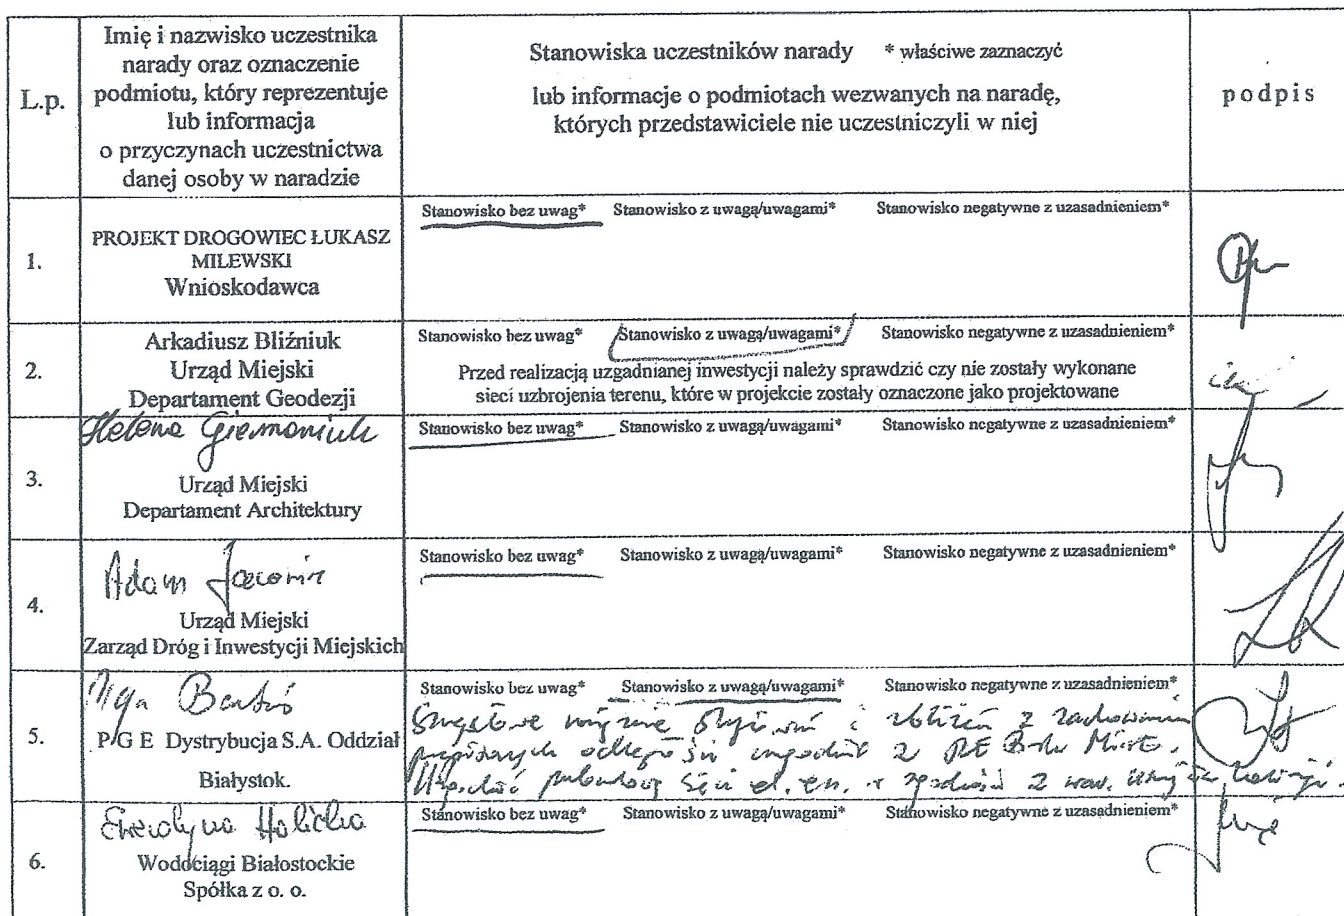 L.p.
Imię i nazwisko uczestnika
narady oraz oznaczenie
podmiotu, który reprezentuje
lub informacja
o przyczynach uczestnictwa
danej osoby w naradzie
Stanowiska uczestników narady * właściwe zaznaczyć
lub informacje o podmiotach wezwanych na naradę,
których przedstawiciele nie uczestniczyli w niej
podpis
1.
PROJEKT DROGOWIEC ŁUKASZ
MILEWSKI
Wnioskodawca
Stanowisko bez uwag* Stanowisko z uwagą/uwagami* Stanowisko negatywne z uzasadnieniem*
2.
Arkadiusz Bliźniuk
Urząd Miejski
Departament Geodezji
Stanowisko bez uwag* Stanowisko z uwagą/uwagami* Stanowisko negatywne z uzasadnieniem*
Przed realizacją uzgadnianej inwestycji należy sprawdzić czy nie zostały wykonane
sieci uzbrojenia terenu, które w projekcie zostały oznaczone jako projektowane
3.
Helena
Urząd Miejski
Departament Architektury
Stanowisko bez uwag* Stanowisko z uwagą/uwagami* Stanowisko negatywne z uzasadnieniem*
4.
Adam
Urząd Miejski
Zarząd Dróg i Inwestycji Miejskich
Stanowisko bez uwag* Stanowisko z uwagą/uwagami* Stanowisko negatywne z uzasadnieniem*
5.
PGE Dystrybucja S.A. Oddział
Białystok.
Stanowisko bez uwag* Stanowisko z uwagą/uwagami* Stanowisko negatywne z uzasadnieniem*
i zbliżeń z zachowaniem
odległości uzgodnić z RE
sieci el. en. w zgodności z
6.
Halicka
Wodociągi Białostockie
Spółka z o. o.
Stanowisko bez uwag* Stanowisko z uwagą/uwagami* Stanowisko negatywne z uzasadnieniem*